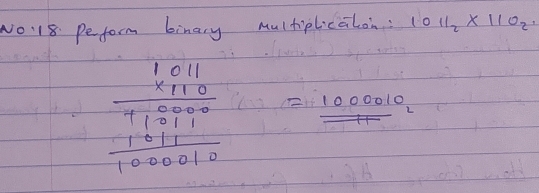 No:18. Perform binary Multiplication: 1011₂ × 110₂.
1011
×110
0000
+1011
1011
1000010
= 1000010₂